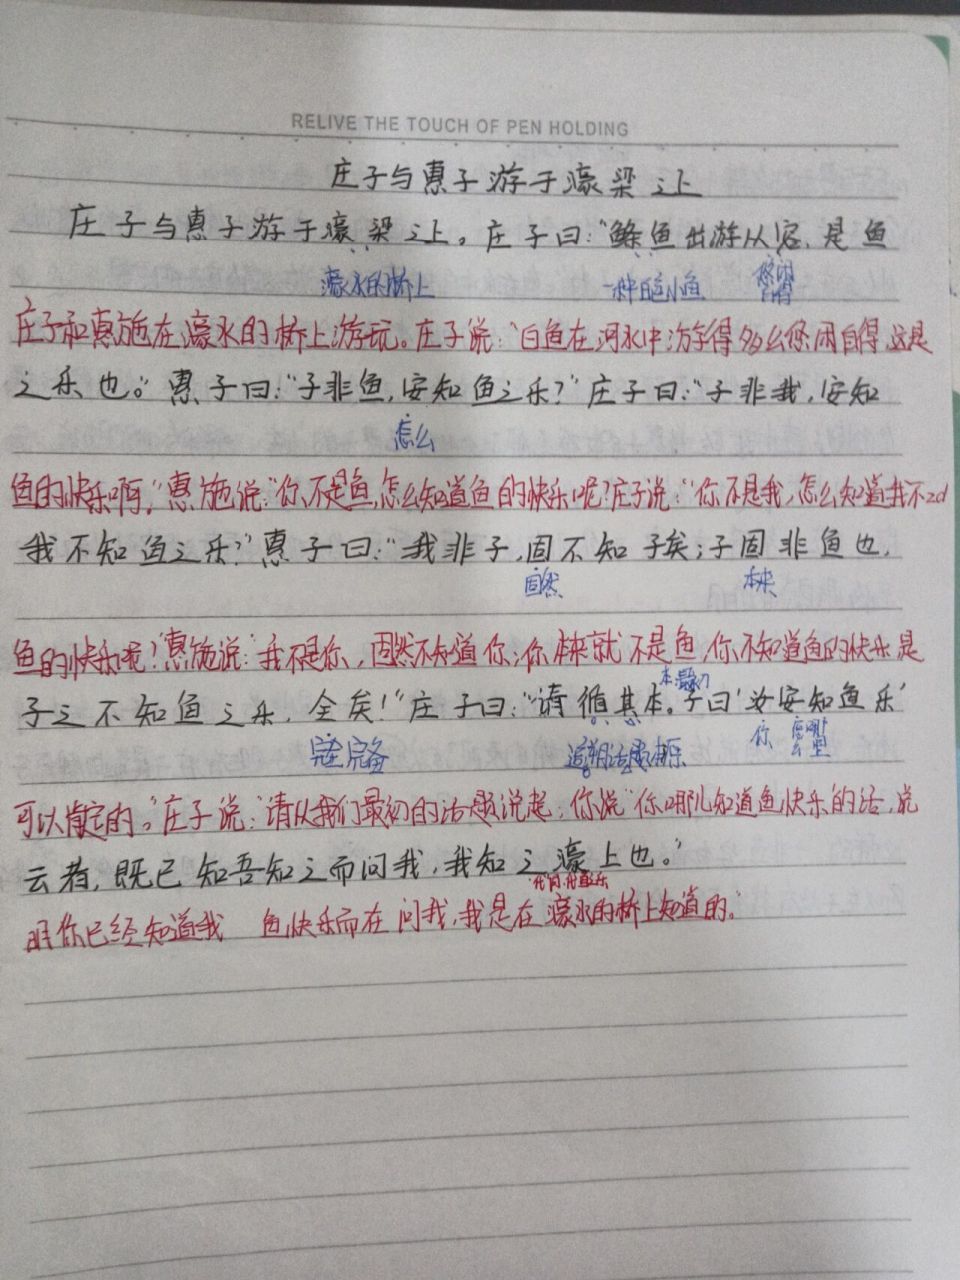 RELIVE THE TOUCH OF PEN HOLDING
庄子与惠子游于濠梁之上
庄子与惠子游于濠梁之上。庄子曰:“鲦鱼出游从容,是鱼
濠水的桥上 一种白色小鱼 悠闲自得
庄子和惠施在濠水的桥上游玩。庄子说:“白鱼在河水中游得多么悠闲自得,这是
之乐也。”惠子曰:“子非鱼,安知鱼之乐?”庄子曰:“子非我,安知
怎么
鱼的快乐啊,”惠施说:“你不是鱼,怎么知道鱼的快乐呢?庄子说:“你不是我,怎么知道我不
我不知鱼之乐?”惠子曰:“我非子,固不知子矣;子固非鱼也,
固然 本来
鱼的快乐呢?惠施说:“我不是你,固然不知道你;你本来就不是鱼,你不知道鱼的快乐是
子之不知鱼之乐,全矣!”庄子曰:“请循其本。子曰‘汝安知鱼乐’
完全完备 追溯话题本原 你
可以肯定的。”庄子说:“请从我们最初的话题说起,你说“你哪儿知道鱼快乐的话,说
云者,既已知吾知之而问我,我知之濠上也。”
明你已经知道我 鱼快乐而在问我,我是在濠水的桥上知道的。”